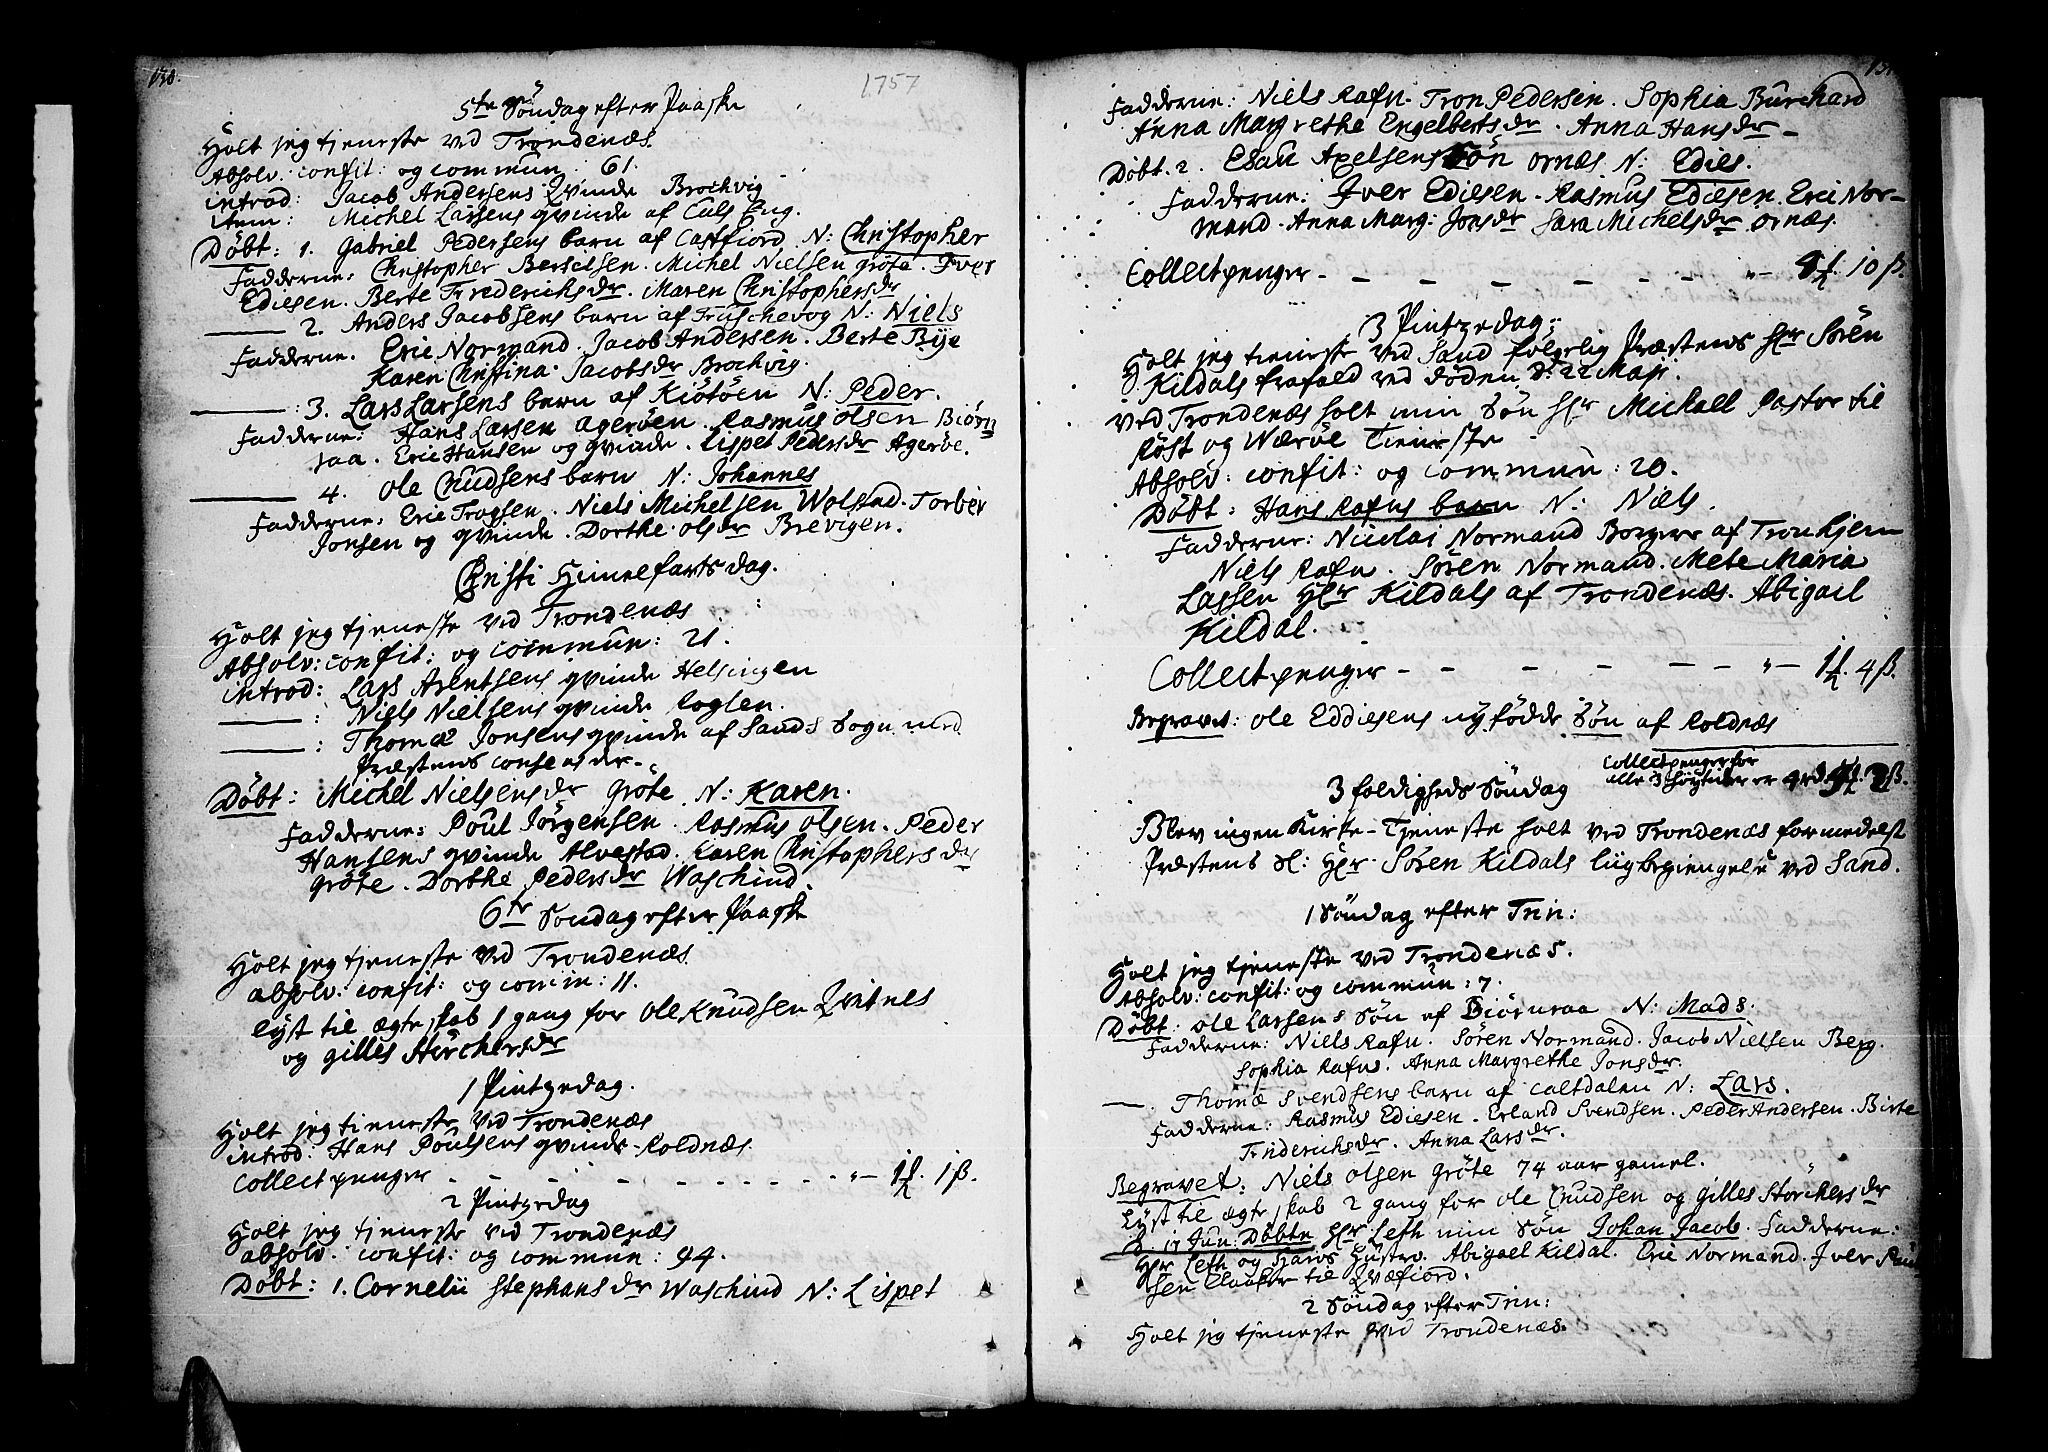 130.
1757
5te Söndag efter Paaske
Holt jeg tjeneste ved Trondenæs.
Absolv: confit: og commun: 61.
introd: Jacob Andersens Qvinde Brochvig
item: Michel Lassens qvinde af
Döbt: 1. Gabriel Pedersens barn af Castfiord N: Christopher
Fadderne: Christopher Bertelsen. Michel Nielsen Gröte. Iver
Ediesen. Berte Friderichsdr. Maren Christophersdr
2. Anders Jacobsens barn af N: Niels
Fadderne. Eric Normand. Jacob Andersen. Berte Bye
Karen Christina Jacobsdr Brochvig.
: 3. Lars Larsens barn af Kiötöen N: Peder.
Fadderne: Hans Larsen Ageröen. Rasmus Olsen Biörn
raa. Eric Hansen og qvinde. Lispet Pedersdr Ageröe.
4. Ole Cnudsens barn N: Johannes
Fadderne: Eric Trogsen. Niels Michelsen Wolstad. Torber
Jonsen og qvinde. Dorthe Olsdr Brevigen.
Christi Himelfarts dag.
Holt jeg tjeneste ved Trondenæs
Absolv: confit: og commun: 21.
introd: Lars Arentsens qvinde Helsingen
: Niels Nielsens qvinde Roglen.
: Thomæ Jonsens qvinde af Sands Sogn med
Præstens consens der.
Döbt: Michel Nielsens dr Gröte N: Karen.
Fadderne: Poul Jörgensen. Rasmus Olsen. Peder
Hansens qvinde Alvestad. Karen Christophersdr
Gröte. Dorthe Pedersdr Waschind.
6te Söndag efter Paaske
Holt jeg tjeneste ved Trondenæs
absolv: confit: og comm: 11.
lyst til ægteskab 1 gang for Ole Knudsen Qvitnes
og Gilles Störchersdr
1 Pintzedag.
Holt jeg tieneste ved Trondenæs
introd: Hans Poulsens qvinde Roldnæs
Collectpenger - - - - - - - - - "- 1 1/2. 1 ß.
2 Pintzedag
Holt jeg tjeneste ved Trondenæs
absolv: confit: og commun: 94.
Döbt: 1. Cornelii Stephansdr Waschind N: Lispet
Fadderne: Niels Rafn. Tron Pedersen. Sophia Burchard
Anna Margrethe Engelbertsdr. Anna Hansdr
Döbt. 2. Esau Axelsens Sön Ornæs N: Edies.
Fadderne: Iver Ediesen. Rasmus Ediesen. Eric Nor-
mand. Anna Marg: Jonsdr Sara Michelsdr Ornæs.
Collectpenger - - - - - - "- 10 ß.
3 Pintzedag:
Holt jeg tieneste ved Sand fölgelig Præstens Hr Sören
Kildals frafald ved döden d: 22 Maji.
ved Trondenæs holt min Sön Hr Michael Pastor til
Röst og Weröe Tieneste
Absolv: confit: og commun: 20.
Döbt: Hans Rafns barn N: Niels.
Fadderne: Nicolai Normand Borger af Tronhjem
Niels Rafn. Sören Normand. Mete Maria
Lassen Hr Kildals af Trondenæs. Abigail
Kildal.
Collectpenger - - - - - - "- 1 1/2. 4 ß.
Begravet: Ole Eddiesens nyfödde Sön af Roldnæs
Collectpenger for
alle 3 höytider er
3 foldigheds Söndag
Blev ingen Kirke-Tjeneste holt ved Trondenæs formedelst
Præstens Sl: Hr Sören Kildals Liigbegiengelse ved Sand.
1 Söndag efter Trin:
Holt jeg tjeneste ved Trondenæs.
Absolv: confit: og commun: 7.
Döbt: Ole Larsens Sön af Biörnraa N: Mads.
Fadderne: Niels Rafn. Sören Normand. Jacob Nielsen Berg.
Sophia Rafns. Anna Margrethe Jonsdr.
. Thomæ Svendsens barn af Caltdalen N: Lars.
Fadderne: Rasmus Ediesen. Erland Svendsen. Peder Andersen. Birte
Friderichsdr. Anna Larsdr.
Begravet: Niels Olsen Gröte 74 aar gamel.
Lyst til ægteskab 2 gang for Ole Cnudsen og Gilles Storchersdr
d. 17 Jun: Döbte Hr Leth min Sön Johan Jacob. Fadderne:
Hr Leth og Hans Hustro. Abigael Kildal. Eric Normand. Iver Poul
sen Claaker til Qvæfiord.
2 Söndag efter Trin:
Holt jeg tjeneste ved Trondenæs.